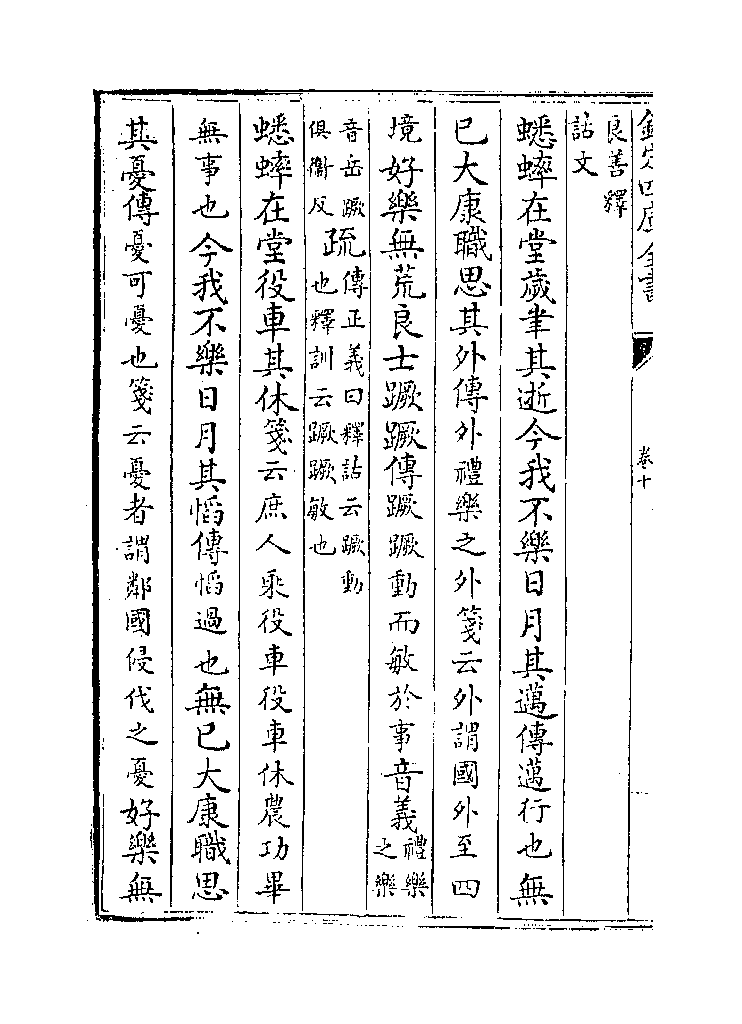 欽定四庫全書
卷十
良善釋
詁文
蟋蟀在堂歲聿其逝今我不樂日月其邁傳邁行也無
已大康職思其外傳外禮樂之外箋云外謂國外至四
境好樂無荒良士蹶蹶傳蹶蹶動而敏於事音義禮樂
之樂
音岳蹶
俱衞反疏傳正義曰釋詁云蹶動
也釋訓云蹶蹶敏也
蟋蟀在堂役車其休箋云庶人乘役車役車休農功畢
無事也今我不樂日月其慆傳慆過也無已大康職思
其憂傳憂可憂也箋云憂者謂鄰國侵伐之憂好樂無